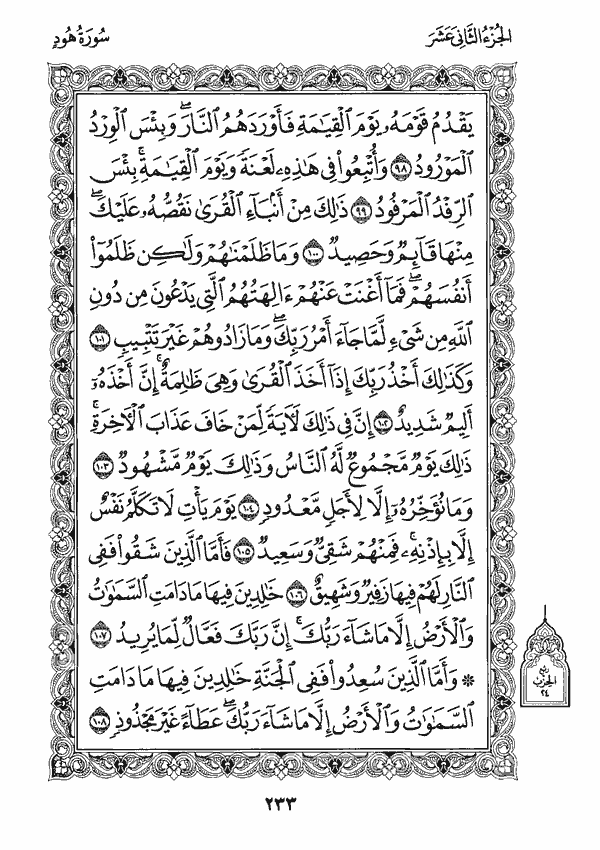 الجُزْءُ الثَّانِىَ عَشَرَ
سُورَةُ هُودٍ
يَقْدُمُ قَوْمَهُۥ يَوْمَ ٱلْقِيَٰمَةِ فَأَوْرَدَهُمُ ٱلنَّارَۖ وَبِئْسَ ٱلْوِرْدُ
ٱلْمَوْرُودُ ٩٨ وَأُتْبِعُوا۟ فِى هَٰذِهِۦ لَعْنَةً وَيَوْمَ ٱلْقِيَٰمَةِۚ بِئْسَ
ٱلرِّفْدُ ٱلْمَرْفُودُ ٩٩ ذَٰلِكَ مِنْ أَنۢبَآءِ ٱلْقُرَىٰ نَقُصُّهُۥ عَلَيْكَۖ
مِنْهَا قَآئِمٌ وَحَصِيدٌ ١٠٠ وَمَا ظَلَمْنَٰهُمْ وَلَٰكِن ظَلَمُوٓا۟
أَنفُسَهُمْۖ فَمَآ أَغْنَتْ عَنْهُمْ ءَالِهَتُهُمُ ٱلَّتِى يَدْعُونَ مِن دُونِ
ٱللَّهِ مِن شَىْءٍ لَّمَّا جَآءَ أَمْرُ رَبِّكَۖ وَمَا زَادُوهُمْ غَيْرَ تَتْبِيبٍ ١٠١
وَكَذَٰلِكَ أَخْذُ رَبِّكَ إِذَآ أَخَذَ ٱلْقُرَىٰ وَهِىَ ظَٰلِمَةٌۚ إِنَّ أَخْذَهُۥٓ
أَلِيمٌ شَدِيدٌ ١٠٢ إِنَّ فِى ذَٰلِكَ لَءَايَةً لِّمَنْ خَافَ عَذَابَ ٱلْءَاخِرَةِۚ
ذَٰلِكَ يَوْمٌ مَّجْمُوعٌ لَّهُ ٱلنَّاسُ وَذَٰلِكَ يَوْمٌ مَّشْهُودٌ ١٠٣
وَمَا نُؤَخِّرُهُۥٓ إِلَّا لِأَجَلٍ مَّعْدُودٍ ١٠٤ يَوْمَ يَأْتِ لَا تَكَلَّمُ نَفْسٌ
إِلَّا بِإِذْنِهِۦۚ فَمِنْهُمْ شَقِىٌّ وَسَعِيدٌ ١٠٥ فَأَمَّا ٱلَّذِينَ شَقُوا۟ فَفِى
ٱلنَّارِ لَهُمْ فِيهَا زَفِيرٌ وَشَهِيقٌ ١٠٦ خَٰلِدِينَ فِيهَا مَا دَامَتِ ٱلسَّمَٰوَٰتُ
وَٱلْأَرْضُ إِلَّا مَا شَآءَ رَبُّكَۚ إِنَّ رَبَّكَ فَعَّالٌ لِّمَا يُرِيدُ ١٠٧
۞ وَأَمَّا ٱلَّذِينَ سُعِدُوا۟ فَفِى ٱلْجَنَّةِ خَٰلِدِينَ فِيهَا مَا دَامَتِ
ٱلسَّمَٰوَٰتُ وَٱلْأَرْضُ إِلَّا مَا شَآءَ رَبُّكَۖ عَطَآءً غَيْرَ مَجْذُوذٍ ١٠٨
ربع
الحزب
٢٤
٢٣٣